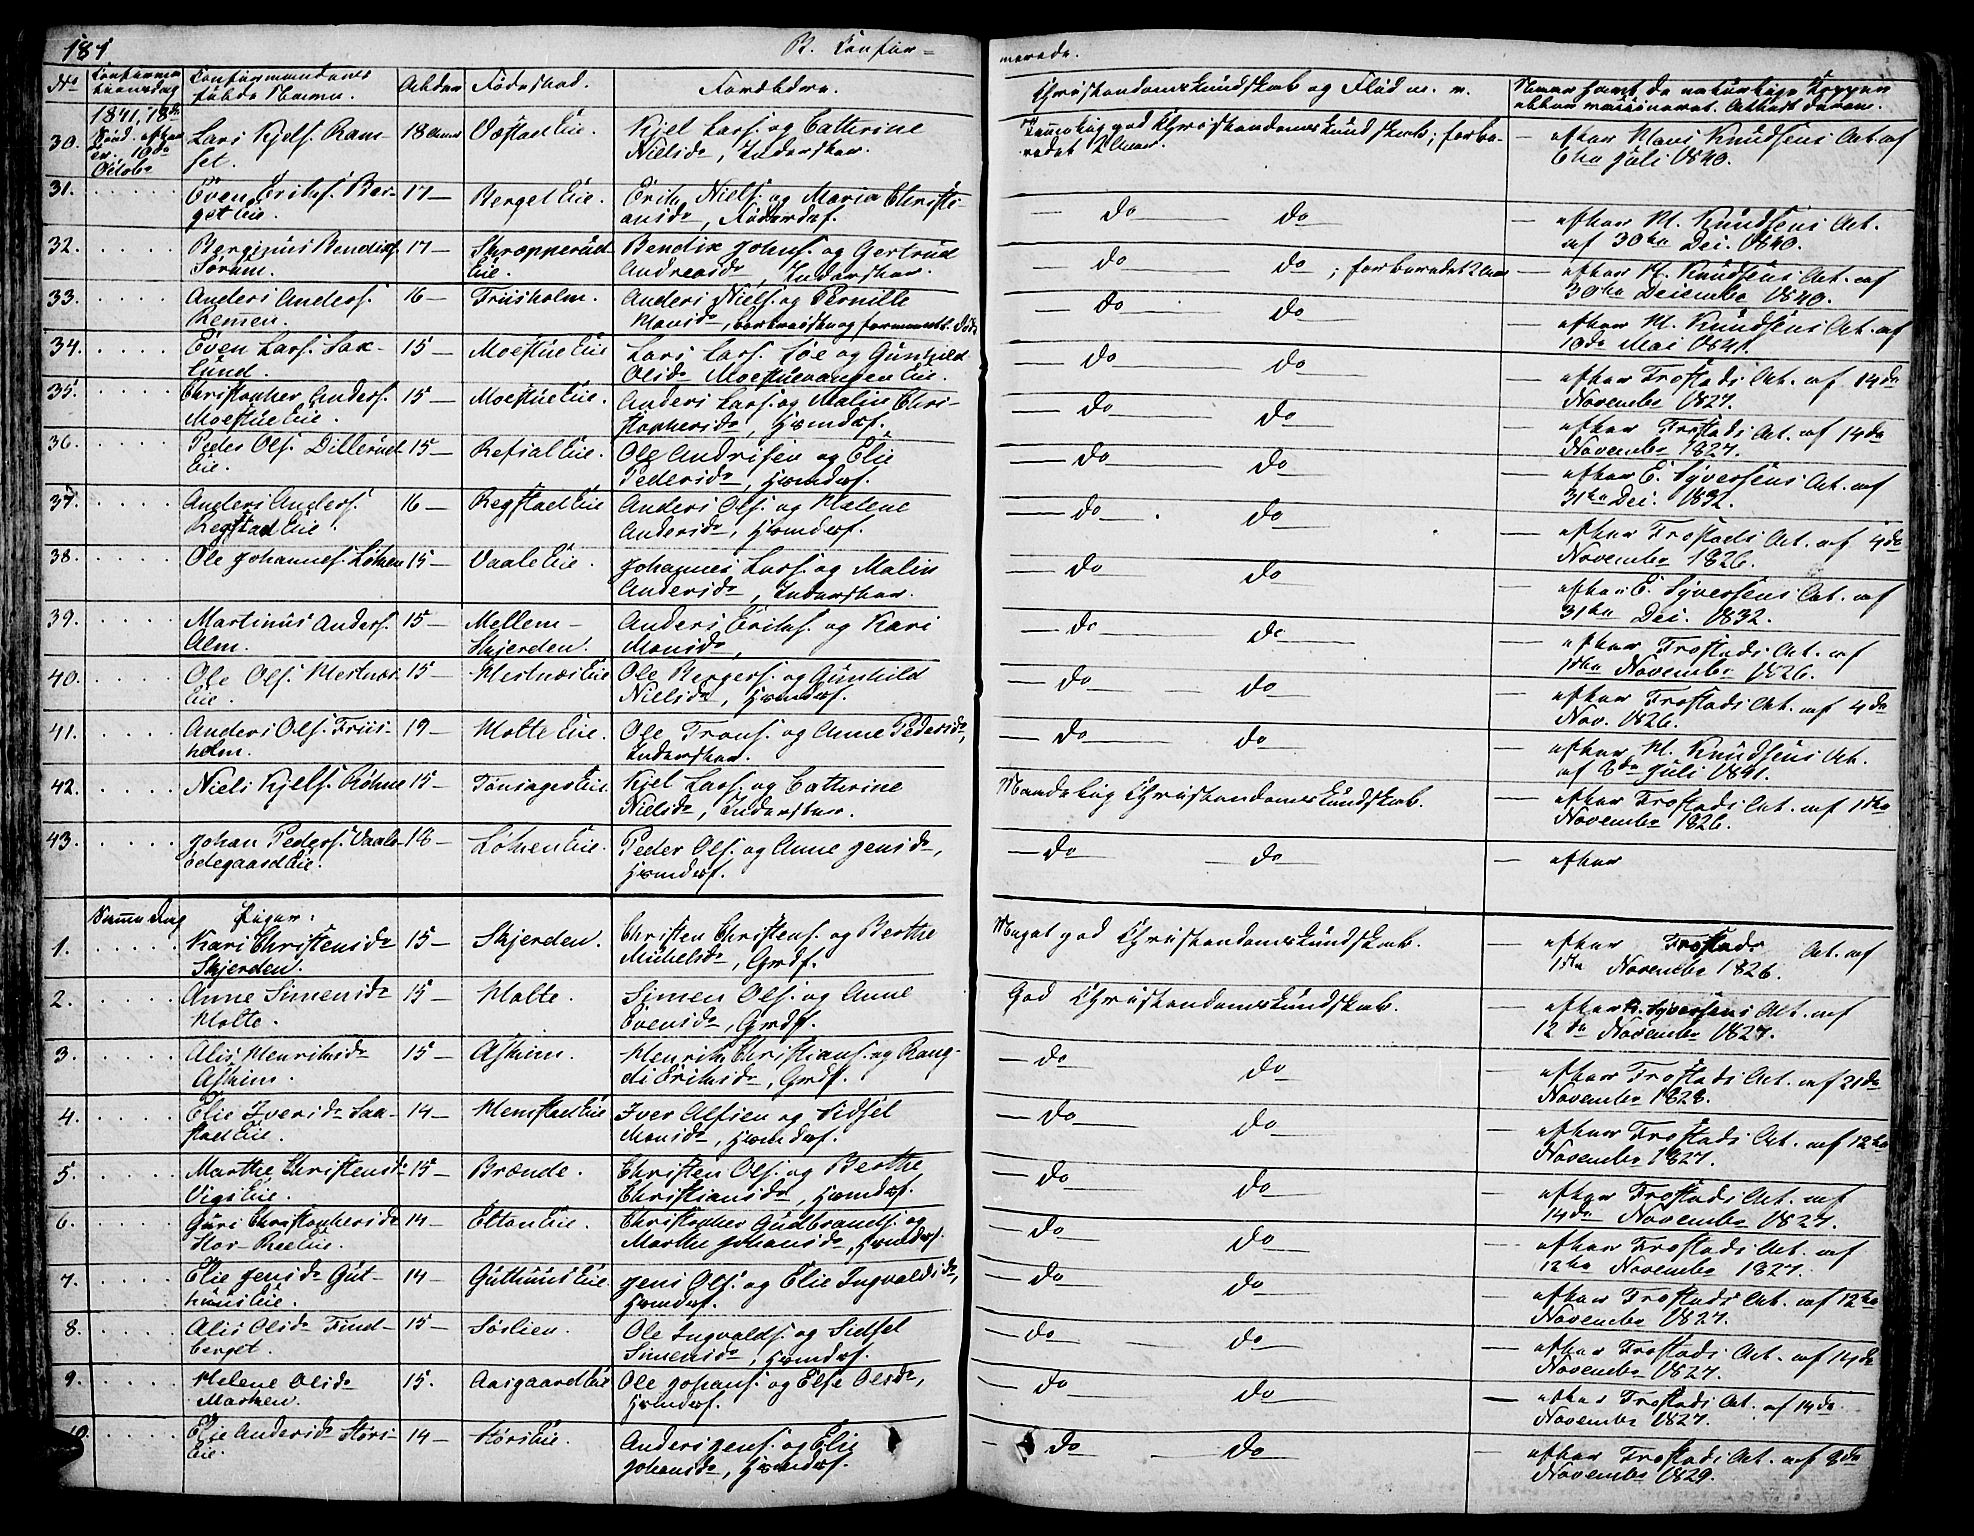 181.
B. Confir-
merede.
No
Confirma-
tionsdag
Confirmandens
fulde Navn.
Alder
Fødested.
Forældre.
Christendomskundskab og Flid m. v.
Naar samt de naturlige Kopper
eller vaccineret. Attest derom.
1841, 18de
Lars Kjels. Ram-
set.
18 Aar
Kjel Lars. og Cathrine
Nielsdr, Inderster.
Temmelig god Christendomskundskab; forbe-
redet 2 Aar.
— efter Mons Knudsens Att. af
6te Juli 1840.
30.
10de
Octobr
31. . . . .
Even Eriks. Ber-
get Eie.
17 —
Berget Eie.
Erik Niels. og Maria Christi-
ansdr,
— do — do —
— efter M. Knudsens Att.
af 30te Dec. 1840.
32. . . . .
Berginus Bendix.
17 —
Skropperud
Eie.
Bendix Johns. og Gertrud
Andreasdr, Inderster.
— do — do; forberedet 2 Aar
— efter M. Knudsens Att. af
30te Decembr 1840.
33. . . . .
Anders Anders.
Remen.
16 —
Friisholm.
Anders Niels. og Pernille
Monsdr,
— do — do —
— efter M. Knudsens Att. af
10de Mai 1841.
34. . . . .
Even Lars. Sax-
lund.
15 —
Moestue Eie
Lars Lars. Loe og Gunhild
Olsdr Moestuevangen Eie.
— do — do —
— efter Frostads Att. af 14de
Novembr 1827.
35. . . . .
Christopher Anders.
Moestue Eie.
15 —
Moestue Eie.
Anders Lars. og Malin Chri-
stophersdr, Huusmdsf.
— do — do —
— efter Frostads Att. af 14de
Novembr 1827.
36. . . . .
Peder Ols. Dillerud
Eie.
15 —
Refsal Eie.
Ole Andersen og Elie
Pedersdr, Huusmdsf.
— do — do —
— efter E. Syversens Att. af
31te Dec. 1832.
37. . . . .
Anders Anders.
Regstad Eie.
16 —
Regstad Eie
Anders Ols. og Malene
Andersdr, Huusmdsf.
— do — do —
— efter Frostads Att. af 4de
Novembr 1826.
38. . . . .
Ole Johannes. Løken
15 —
Vaale Eie.
Johannes Lars. og Malin
Andersdr, Inderster.
— do — do
— efter E. Syversens Att. af
31te Dec. 1832.
39. . . . .
Martinus Anders.
Alm.
15 —
Mellem-
Skjerden.
Anders Eriks. og Kari
Monsdr,
— do — do —
— efter Frostads Att. af
1ste Novembr 1826.
40. . . . .
Ole Ols. Mestnæs
Eie.
15 —
Mestnæs Eie
Ole Bergers. og Gunhild
Nielsdr, Huusmdsf.
— do — do —
— efter Frostads Att. af 4de
Nov. 1826.
41. . . . .
Anders Ols. Friis-
holm.
19 —
Molte Eie.
Ole Trons. og Anne Pedersdr,
Inderster.
— do — do —
— efter M. Knudsens Att.
af 8de Juli 1841.
42. . . . .
Niels Kjels. Røhne
15 —
Kjel Lars. og Cathrine
Nielsdr, Inderster.
Maadelig Christendomskundskab.
— efter Frostads Att. af 1ste
Novembr 1826.
43. . . . .
Johan Peders. Vaale-
ødegaard Eie.
18 —
Løken Eie.
Peder Ols. og Anne Jensdr,
Huusmdsf.
— do — do —
— efter
Samme Dag
Piger:
1. . . . .
Kari Christensdr
Skjerden.
15 —
Skjerden.
Christen Christens. og Berthe
Mikelsdr, Grdf.
Meget god Christendomskundskab.
— efter Frostads Att. af
1ste Novembr 1826.
2. . . . .
Anne Simensdr
Molte.
15 —
Molte.
Simen Ols. og Anne
Evensdr, Grdf.
God Christendomskundskab.
— efter E. Syversens Att. af
12te Novembr 1827.
3. . . . .
Alis Henriksdr
Askim.
15 —
Askim.
Henrik Christians. og Rang-
di Eriksdr, Grdf.
— do — do —
— efter Frostads Att. af 21de
Novembr 1828.
4. . . . .
Elie Iversdr Saa-
stad Eie.
14 —
Hemstad Eie
Iver Alfsen og Sidsel
Monsdr, Huusmdsf.
— do — do —
— efter Frostads Att. af 12te
Novembr 1827.
5. . . . .
Marthe Christensdr
Vigs Eie.
15 —
Brænde.
Christen Ols. og Berthe
Christiansdr, Huusmdsf.
— do — do —
— efter Frostads Att. af
14de Novembr 1827.
6. . . . .
Guri Christophersdr
Stor-Ree Eie.
14 —
Elton Eie.
Christopher Gudbrands. og
Marthe Johansdr, Huusmdsf.
— do — do —
— efter Frostads Att. af
12te Novembr 1827.
7. . . . .
Elie Jensdr Gut-
huus Eie.
14 —
Guthuus Eie.
Jens Ols. og Elie Ingvaldsdr,
Huusmdsf.
— do — do —
— efter Frostads Att. af 12te
Novembr 1827.
8. . . . .
Alis Olsdr Find-
berget.
15 —
Sørlien.
Ole Ingvalds. og Sidsel
Simensdr, Huusmdsf.
— do — do —
— efter Frostads Att. af 14de
Novembr 1827.
9. . . . .
Helene Olsdr
Marken.
15.
Aasgaard Eie
Ole Johans. og Else Olsdr,
Huusmdsf.
— do — do —
— efter Frostads Att. af 14de
Novembr 1827.
10. . . . .
Elie Andersdr Hors-
Eie.
14 —
Hors Eie.
Anders Jens. og Elie
Johansdr, Huusmdsf.
— do — do —
— efter Frostads Att. af 8de
Novembr 1829.